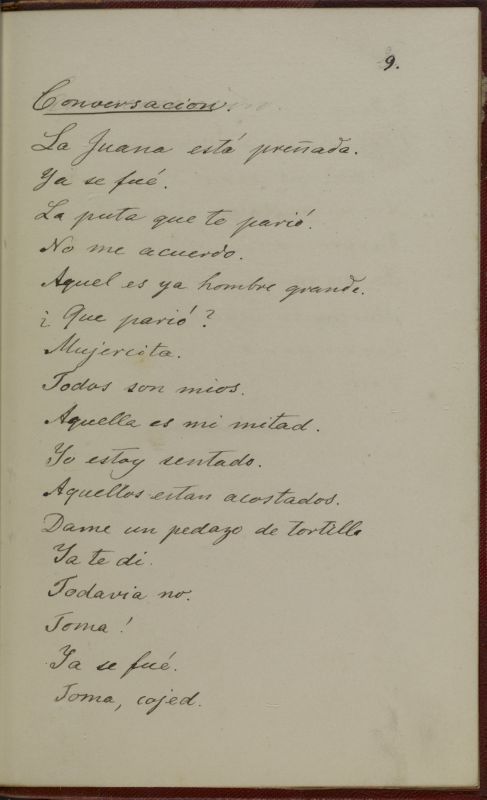 9.
Conversacion.
La Juana está preñada.
Ya se fué.
La puta que te parió.
No me acuerdo.
Aquel es ya hombre grande.
¿ Que parió?
Mujercita.
Todos son mios.
Aquella es mi mitad.
Yo estoy sentado.
Aquellos estan acostados.
Dame un pedazo de tortilla
Ya te di.
Todavia no.
Toma!
Ya se fué.
Toma, cojed.